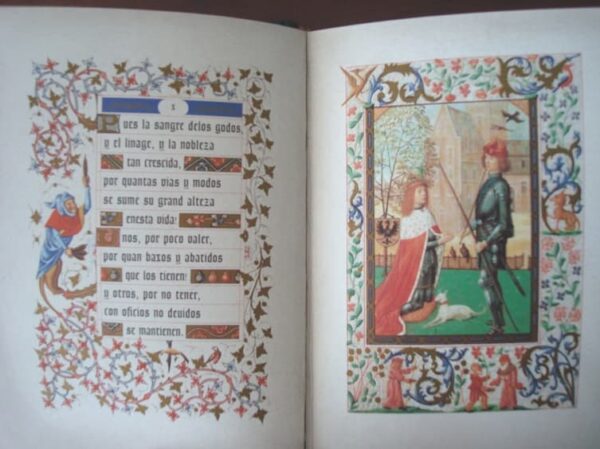 X
Pues la sangre delos godos,
y el linage, y la nobleza
tan crescida,
por quantas vias y modos
se sume su grand alteza
enesta vida!
Unos, por poco valer,
por quan baxos y abatidos
que los tienen!
y otros, por no tener,
con oficios no deuidos
se mantienen.